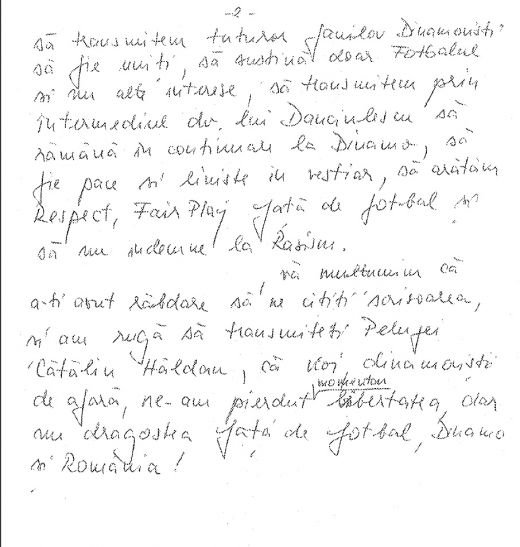 -2-
să transmitem tuturor fanilor Dinamoviști
să fie uniți, să susțină doar Fotbalul
și nu alte interese, să transmitem prin
intermediul dv. lui Dănciulescu să
rămână în continuare la Dinamo, să
fie pace și liniște în vestiar, să arătăm
Respect, Fair Play față de fotbal și
să nu îndemne la Rasism.
vă mulțumim că
ați avut răbdare să ne citiți scrisoarea,
și am ruga să transmiteți Peluzei
Cătălin Hâldan, că noi, dinamoviști
de afară, ne-am pierdut momentan libertatea, dar
nu dragostea față de fotbal, Dinamo
și România!